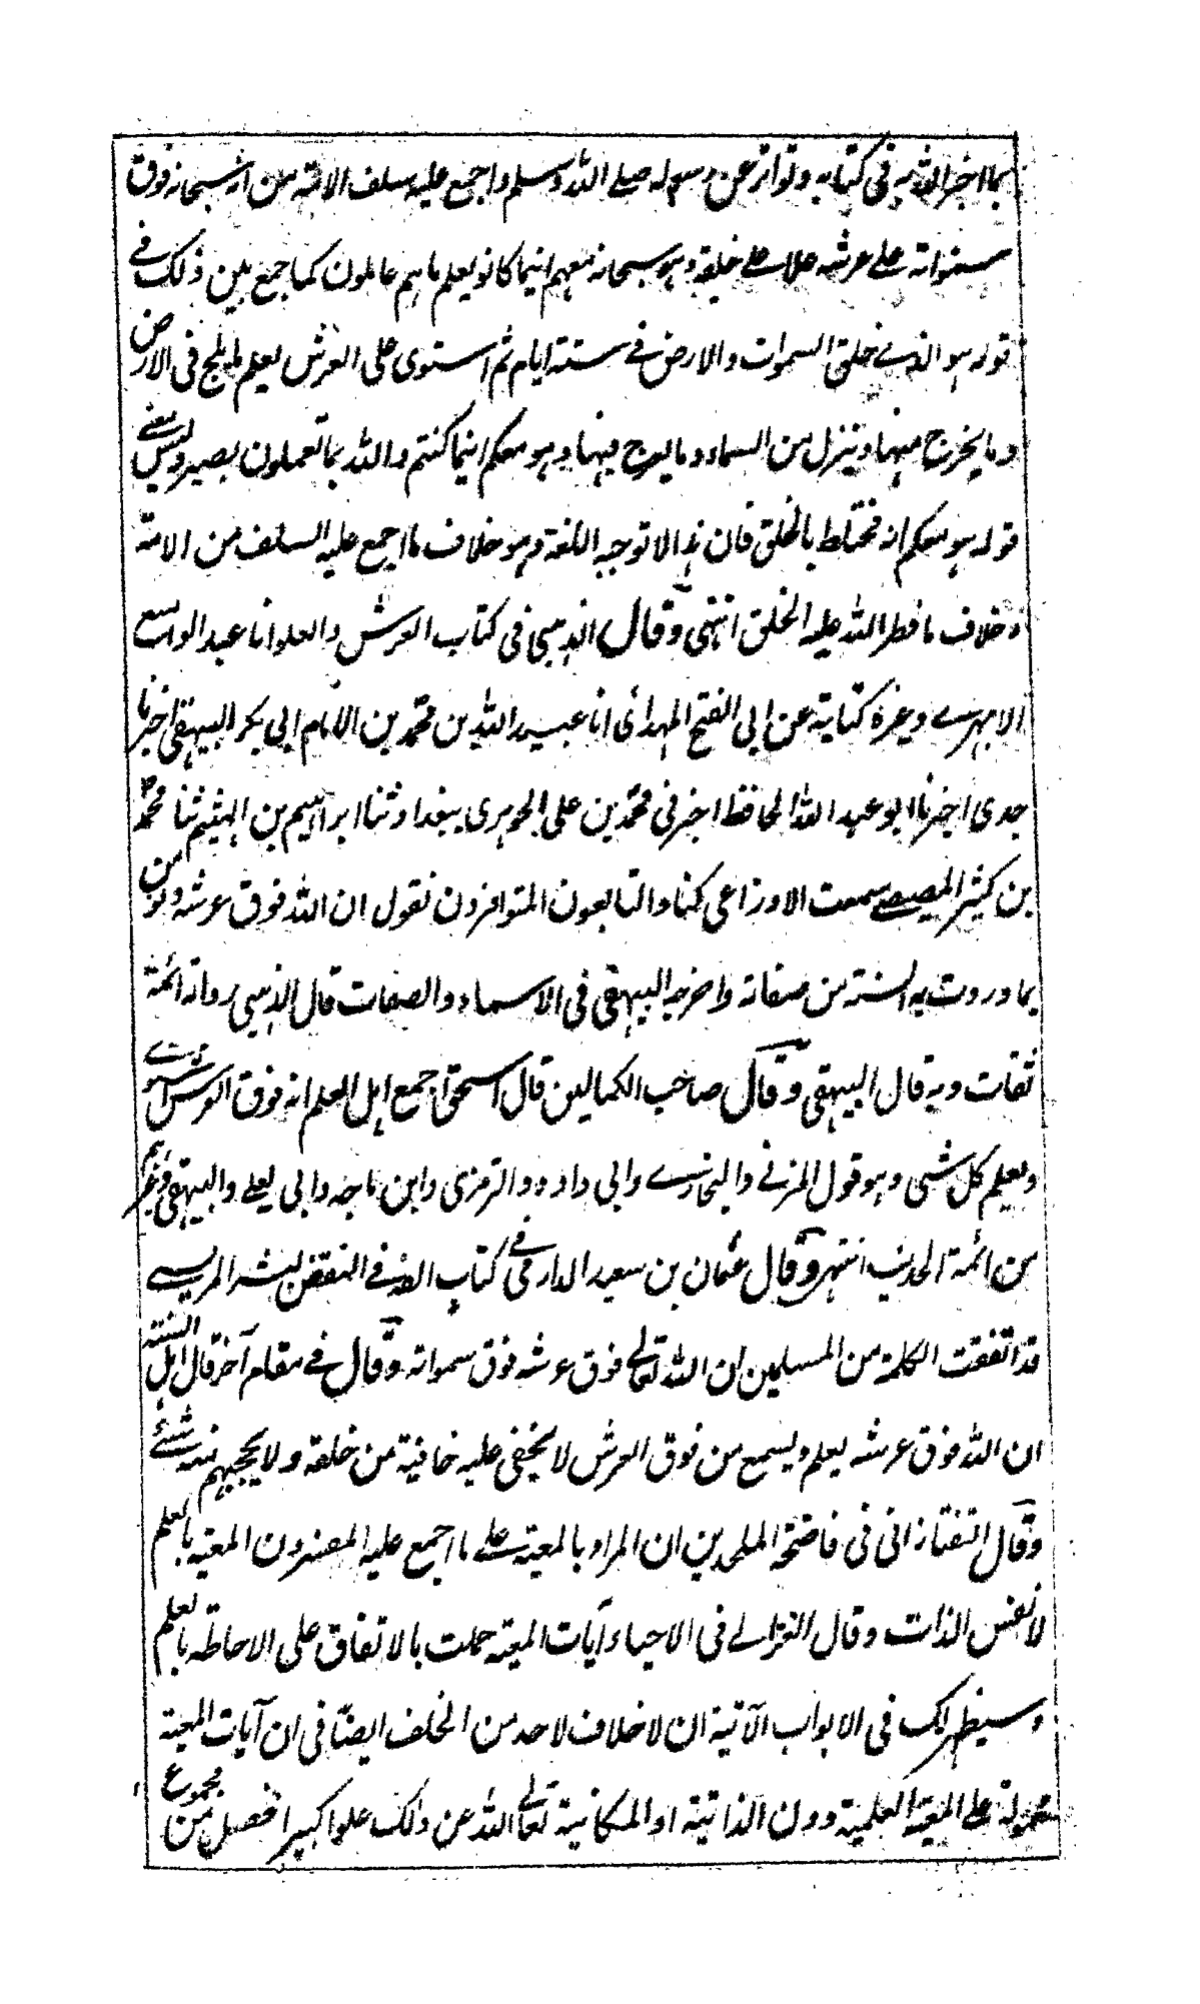 بما اخبر الله به في كتابه وتواتر عن رسوله صلے الله وسلم واجمع عليه سلف الامة من انه سبحانه فوق
سمواته علے عرشه علا علے خلقه وهو سبحانه معهم اينما كانوا يعلم ما هم عاملون كما جمع بين ذلك فے
قوله هو الذے خلق السموات والارض فے ستة ايام ثم استوى على العرش يعلم ما يلج فى الارض
وما يخرج منها وينزل من السماء وما يعرج فيها وهو معكم اينما كنتم والله بما تعملون بصير وليس معنے
قوله هو معكم انه مختلط بالخلق فان هذا لا توجبه اللغة وهو خلاف ما اجمع عليه السلف من الامة
وخلاف ما فطر الله عليه الخلق انتهى وقال الذهبى فى كتاب العرش والعلو انا عبد الواسع
الابهرے وغيره كتابة عن ابى الفتح المهدائى انا عبيد الله بن محمد بن الامام ابى بكر البيهقى اخبرنا
جدى اخبرنا ابو عبد الله الحافظ اخبرنى محمد بن على الجوهرى ببغداد ثنا ابراهيم بن الهيثم ثنا محمد
بن كثير المصيصے سمعت الاوزاعى كنا والتابعون المتوافرون نقول ان الله فوق عرشه ونومن
بما وردت به السنة من صفاته واخرجه البيهقى فى الاسماء والصفات قال الذهبى رواته ائمة
ثقات وبه قال البيهقى وقال صاحب الكمالين قال اسحق اجمع اهل العلم انه فوق العرش استوے
ويعلم كل شى وهو قول المزنے والبخارے وابى داود والترمزى وابن ماجه وابى يعلے والبيهقى وغيرهم
من ائمة الحديث انتهى وقال عثمان بن سعيد الدارمى فے كتاب الذے فے النقض لبشر المريسے
قد اتفقت الكلمة من المسلمين ان الله تعالے فوق عرشه فوق سمواته وقال فے مقام آخر قال اهل السنة
ان الله فوق عرشه يعلم ويسمع من فوق العرش لا يخفى عليه خافية من خلقه ولا يحجبهم عنه شئے
وقال التفتازانى فى فاضحة الملحدين ان المراد بالمعية علے ما اجمع عليه المفسرون المعية بالعلم
لا نفس الذات وقال الغزالے فى الاحياء آيات المعية حملت بالاتفاق على الاحاطه بالعلم
وسيظهر لك فى الابواب الآتية ان لا خلاف لاحد من الخلف ايضًا فى ان آيات المعية
محمولة على المعية العلمية دون الذاتية او المكانية تعالے الله عن ذلك علوا كبيرا فحصل من مجموع